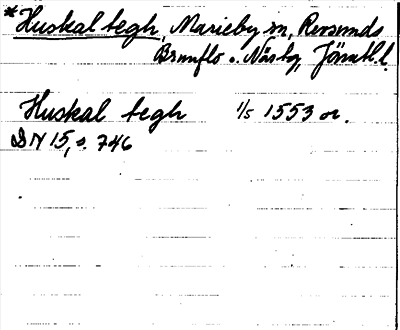 *Huskal tegh, Marieby sn, Revsunds
Brunflo o. Näs tg, Jämtl. l.
Huskal tegh 1/5 1553 or.
DN 15, s. 746